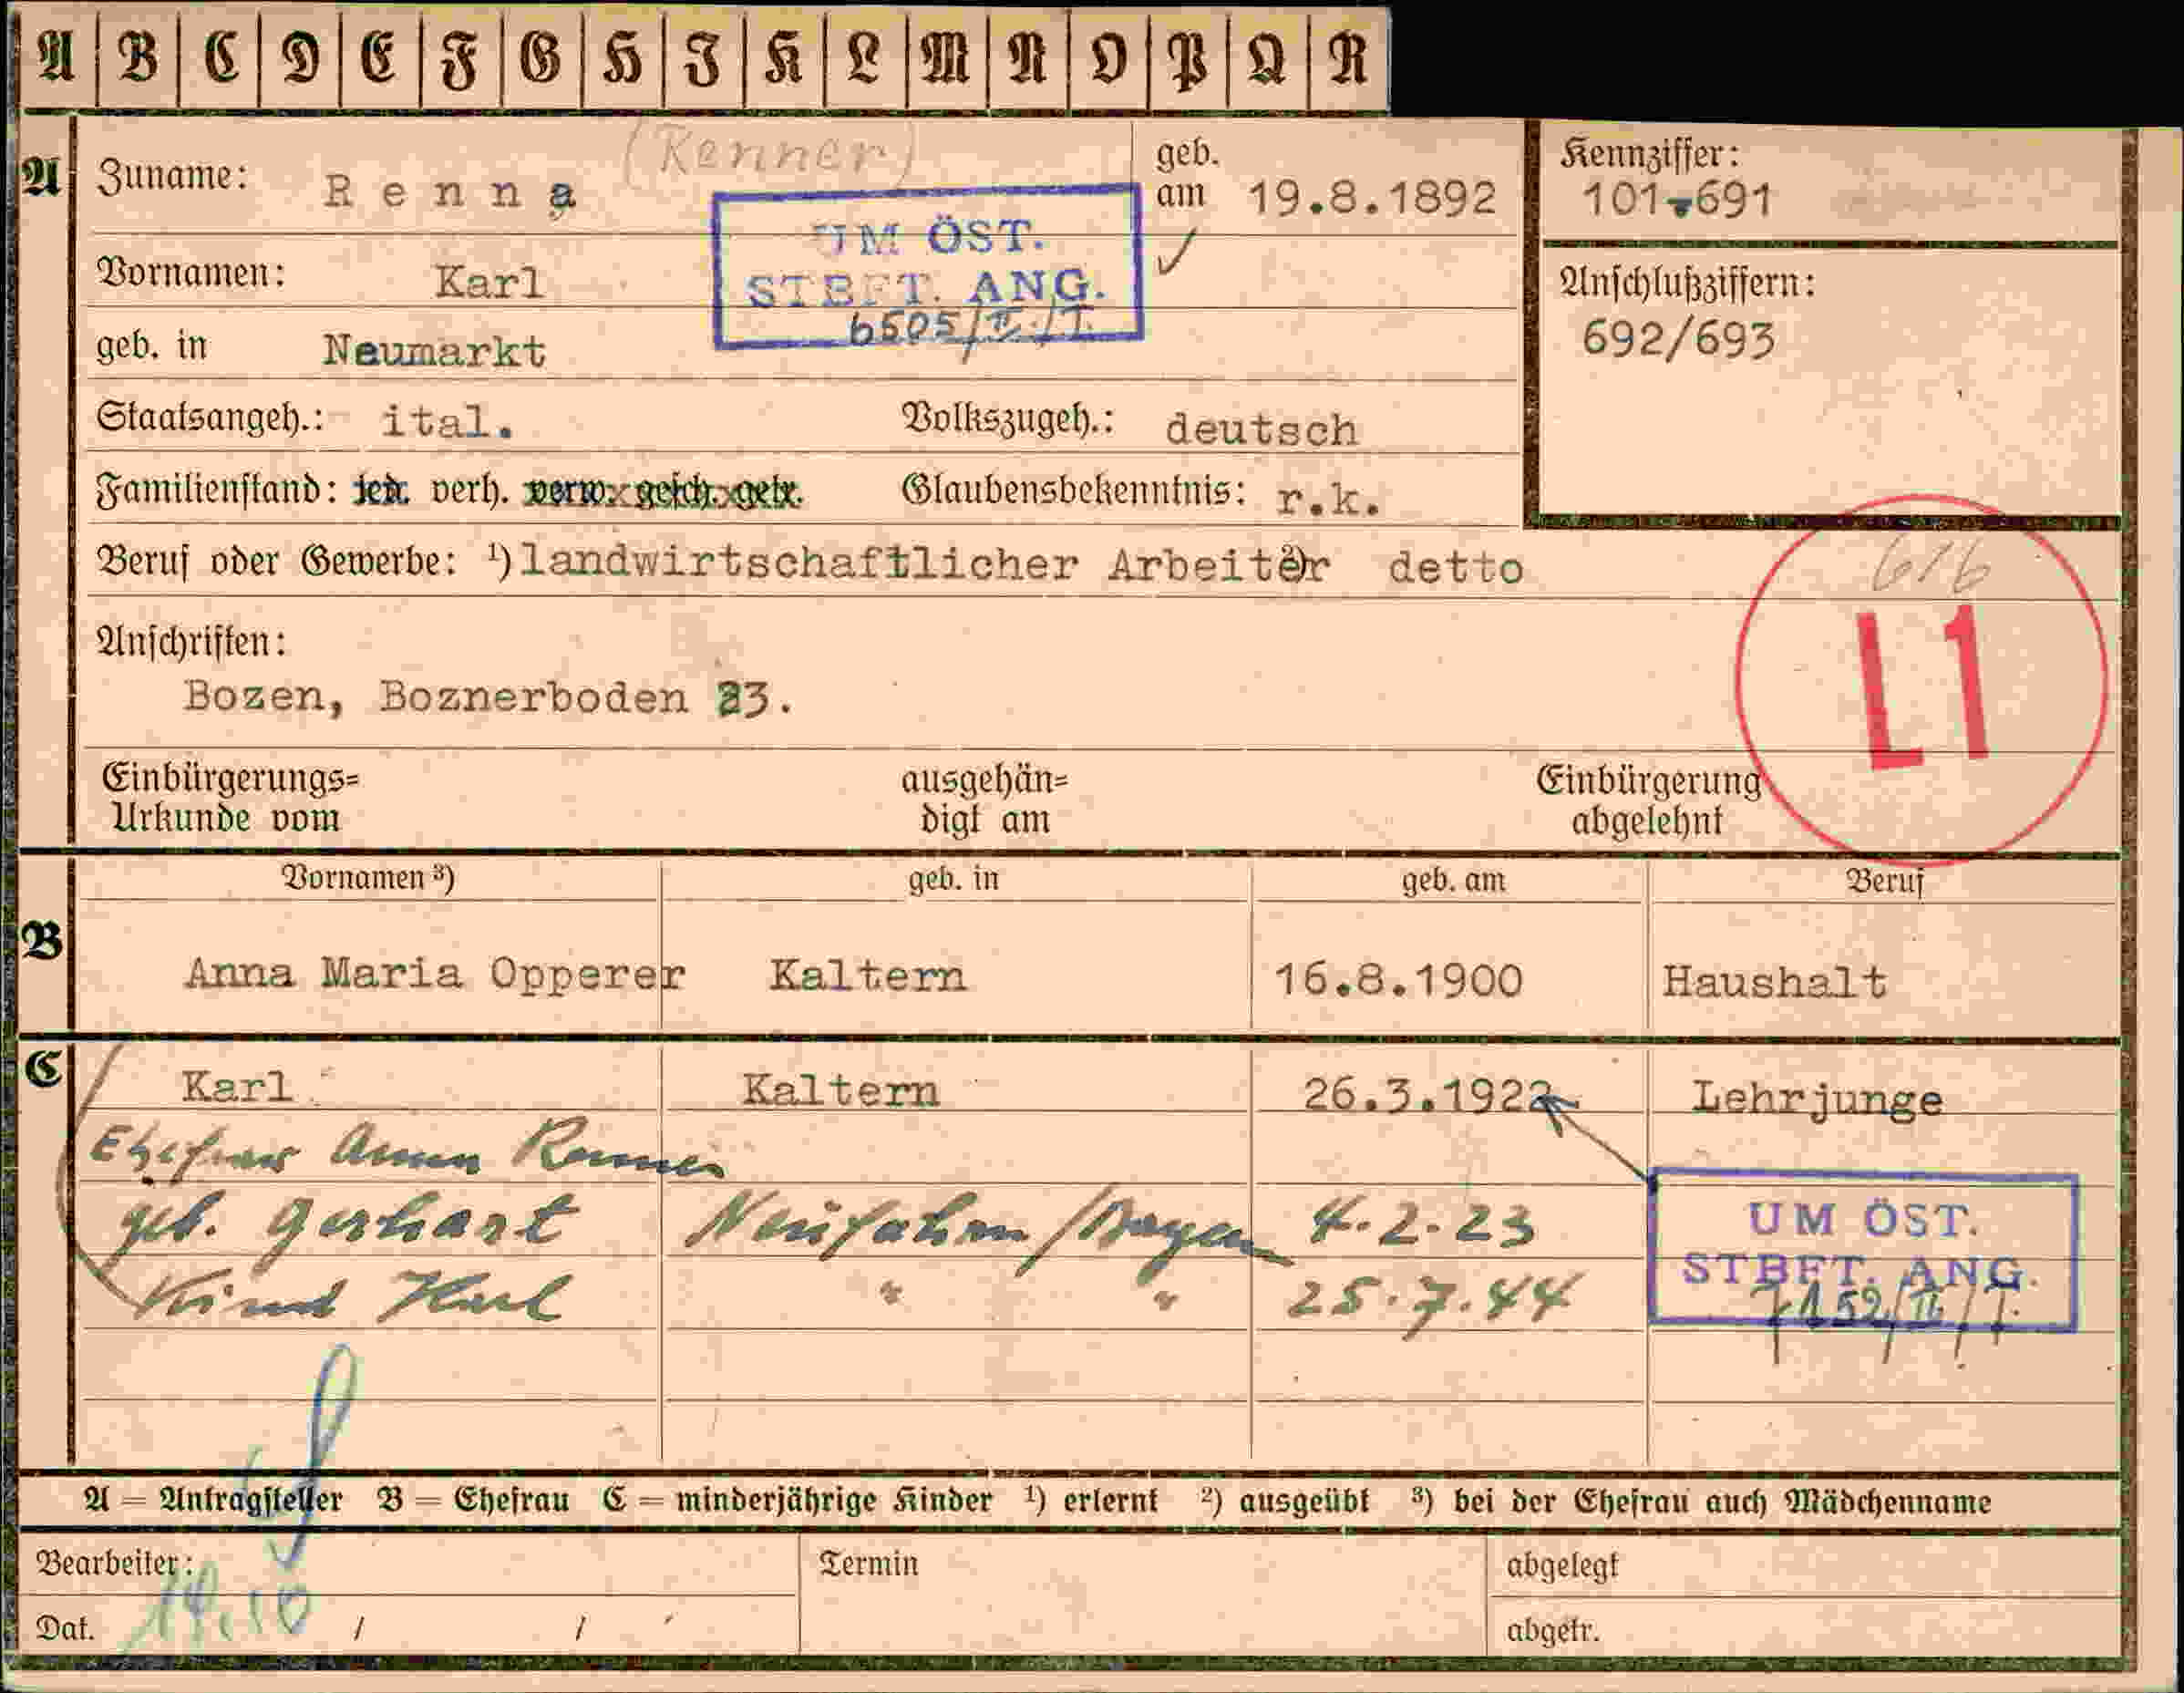 A B C D E F G H J K L M N O P Q R
(Renner)
A Zuname: Renna geb. am 19.8.1892 Kennziffer: 101-691
UM ÖST.
STBFT. ANG.
6505/II./I.
Vornamen: Karl
geb. in Neumarkt
Anschlußziffern:
692/693
Staatsangeh.: ital. Volkszugeh.: deutsch
Familienstand: led. verh. verw. gesch. getr. Glaubensbekenntnis: r.k.
Beruf oder Gewerbe: ¹) landwirtschaftlicher Arbeiter ²) detto
616
L1
Anschriften:
Bozen, Boznerboden 23.
Einbürgerungs=
Urkunde vom
ausgehän=
digt am
Einbürgerung
abgelehnt
Vornamen ³) geb. in geb. am Beruf
B Anna Maria Opperer Kaltern 16.8.1900 Haushalt
C Karl Kaltern 26.3.1922 Lehrjunge
Ehefrau Anna Renner
geb. Gerhart Neufahrn/Bayern 4.2.23
Kind Karl " " 25.7.44
UM ÖST.
STBFT. ANG.
7152/II/I.
A = Antragsteller B = Ehefrau C = minderjährige Kinder ¹) erlernt ²) ausgeübt ³) bei der Ehefrau auch Mädchenname
Bearbeiter: Termin abgelegt
Dat. 14.10 / / abgetr.